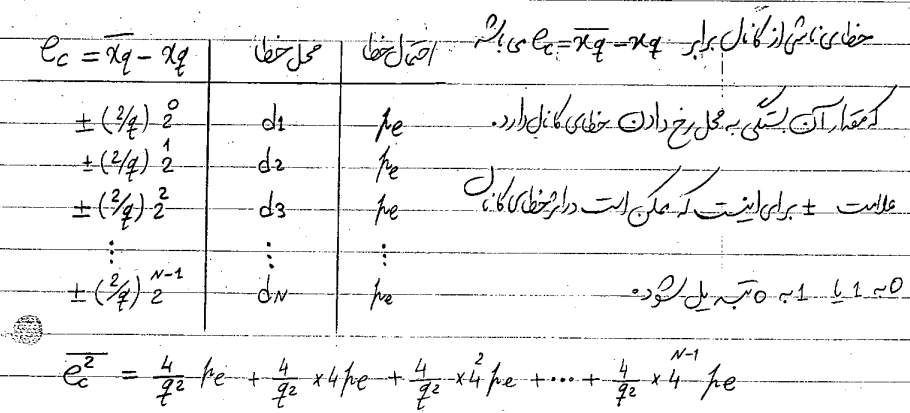 خطای ناشی از کانال برابر e_c = \overline{x_q} - x_q می باشد
که مقدار آن بستگی به محل رخ دادن خطای کانال دارد.
علامت ± برای اینست که ممکن است در اثر خطای کانال
0 به 1 یا 1 به 0 تبدیل شود.
e_c = \overline{x_q} - x_q | محل خطا | احتمال خطا
±(2/q) 2^0 | d1 | pe
±(2/q) 2^1 | d2 | pe
±(2/q) 2^2 | d3 | pe
⋮ | ⋮ | ⋮
±(2/q) 2^{N-1} | dN | pe
\overline{e_c^2} = \frac{4}{q^2} pe + \frac{4}{q^2} × 4 pe + \frac{4}{q^2} × 4^2 pe + ⋯ + \frac{4}{q^2} × 4^{N-1} pe